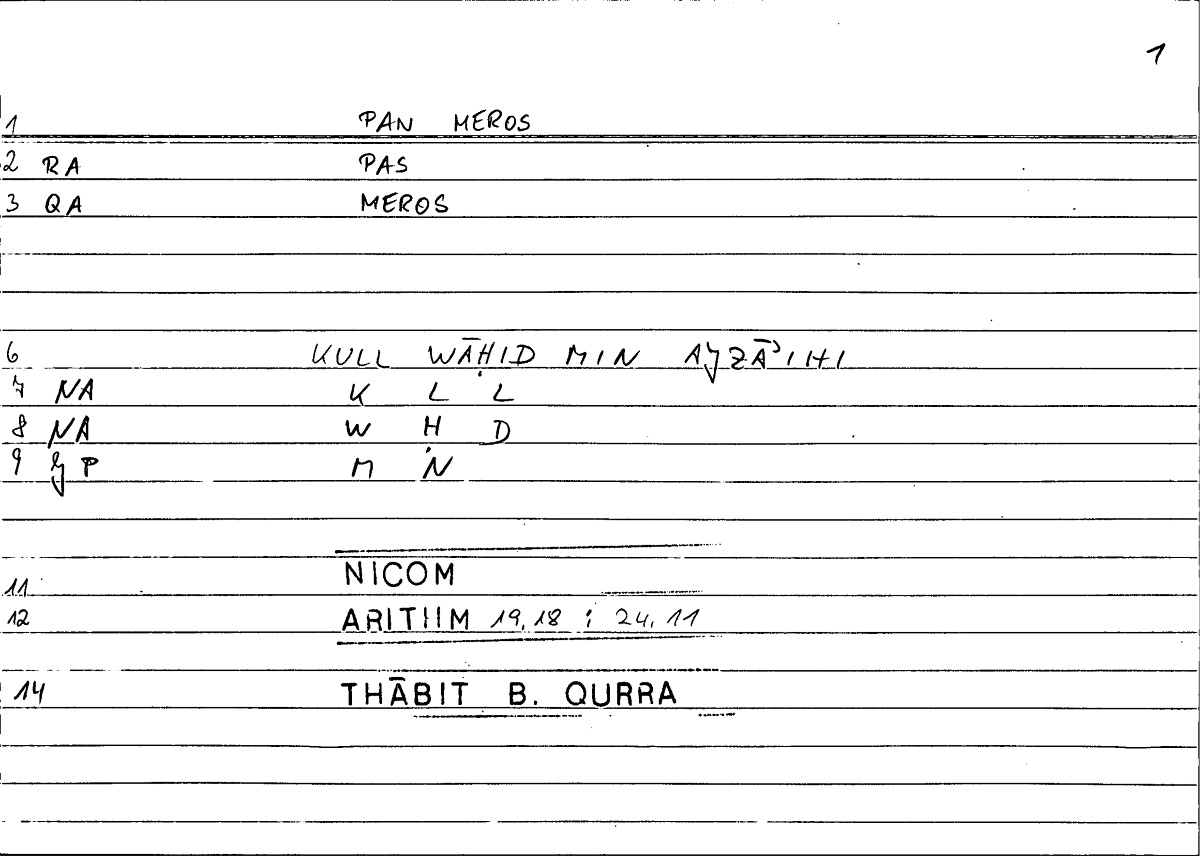 1
1 PAN MEROS
2 RA PAS
3 QA MEROS
6 KULL WĀḤID MIN AǦZĀʾIHI
7 NA K L L
8 NA W Ḥ D
9 ǦP M N
11 NICOM
12 ARITHM 19,18 ; 24,11
14 THĀBIT B. QURRA